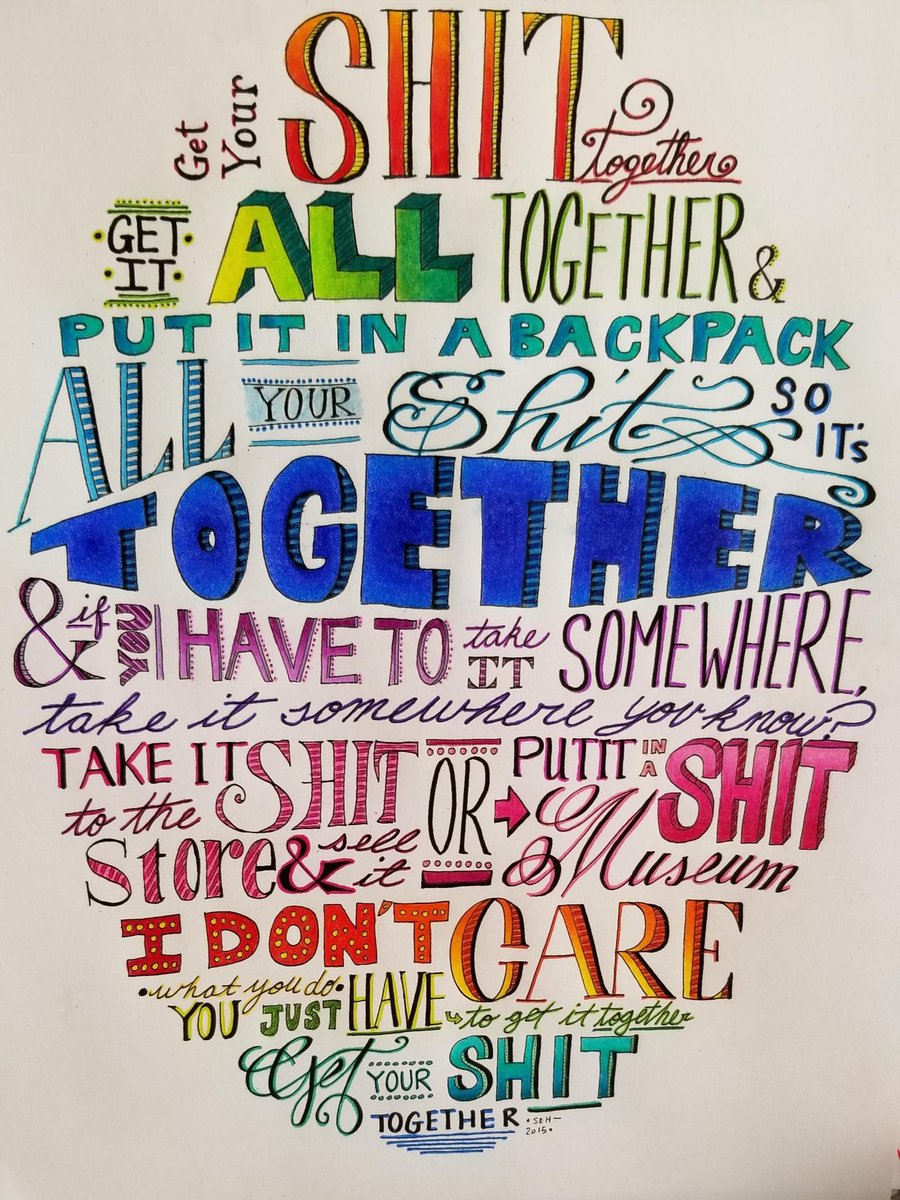 Get Your SHIT together
GET IT ALL TOGETHER &
PUT IT IN A BACKPACK
ALL YOUR Shit SO IT'S
TOGETHER
& if YOU HAVE TO take IT SOMEWHERE,
take it somewhere you know?
TAKE IT to the SHIT Store & sell it OR PUT IT IN A SHIT Museum
I DON'T CARE
what you do
YOU JUST HAVE to get it together
Get YOUR SHIT
TOGETHER
SEH
2015